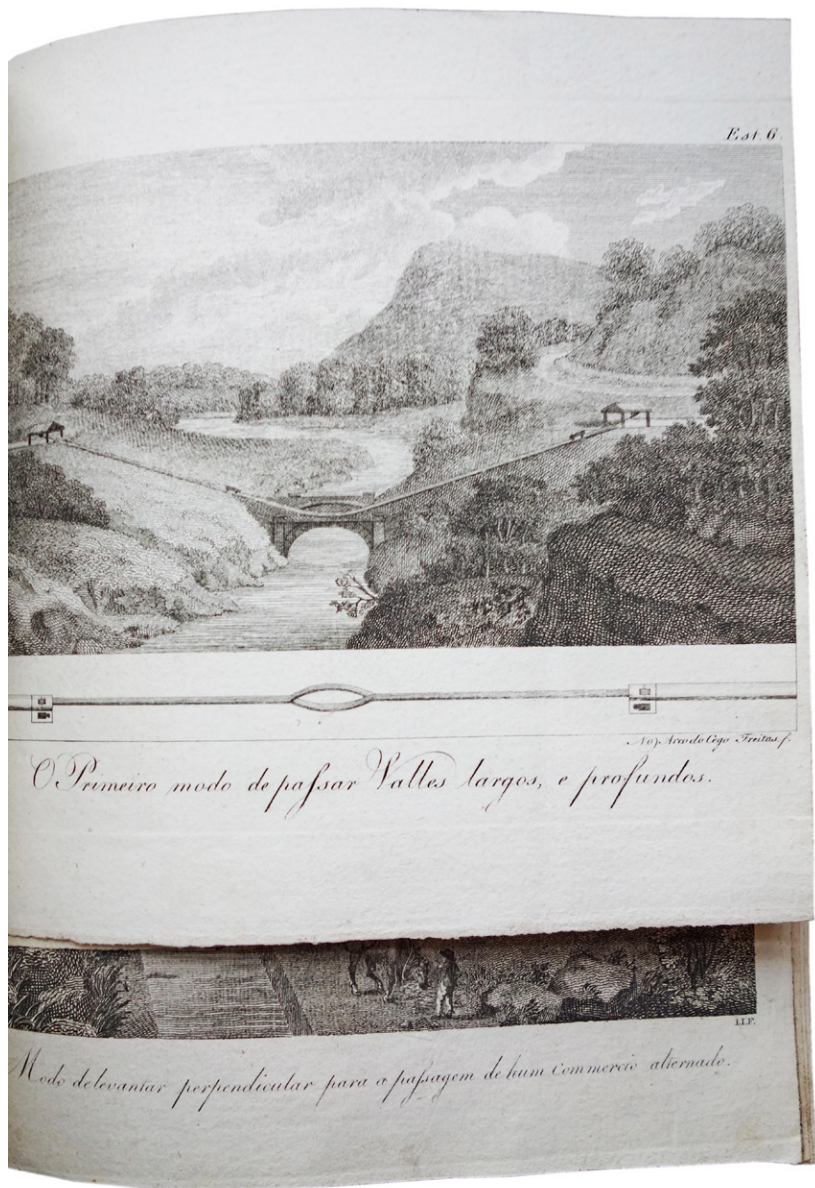 Est. 6.
No Arco do Cego Freitas f.
O Primeiro modo de paſsar Valles largos, e profundos.
I.I.F.
Modo de levantar perpendicular para a paſsagem de hum Commercio alternado.